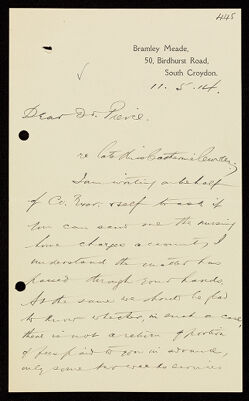 445
Bramley Meade,
50, Birdhurst Road,
South Croydon.
11. 5. 14.
Dear Dr. Pierce.
re late Miss
I am writing on behalf
of Co. Exor. & self to ask if
you can send me the nursing
home charges account, I
understand the matter has
passed through your hands.
At the same we should be glad
to know whether, in such a case,
there is not a return of portion
of fees paid to you in advance,
only some two weeks